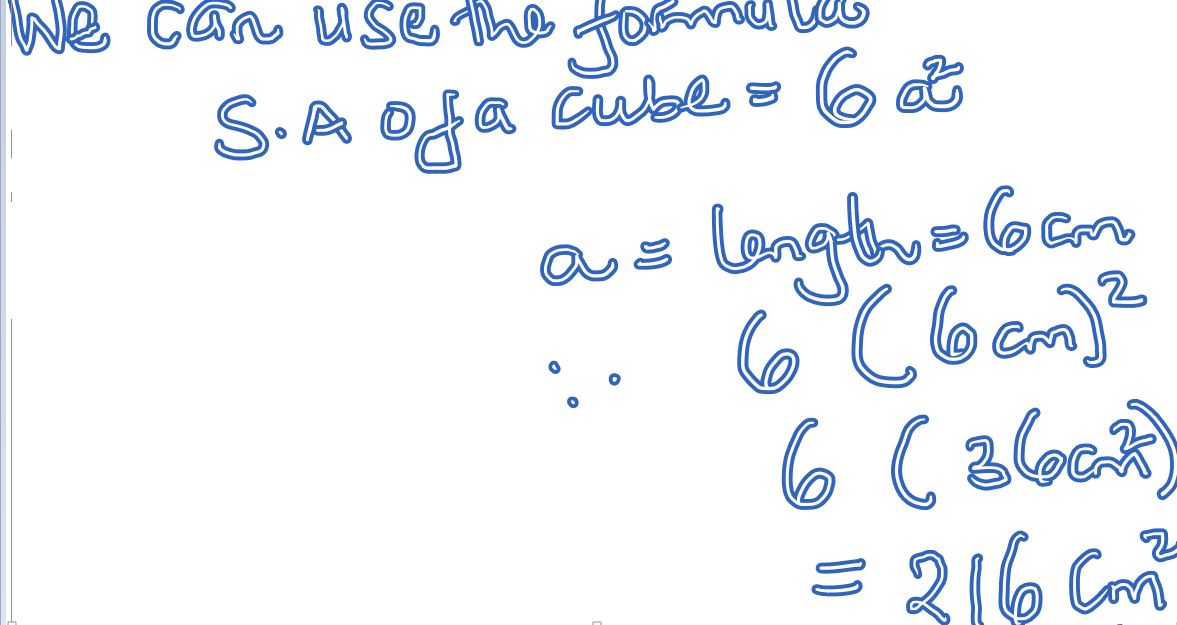 We can use the formula
S.A of a cube = 6a²
a = length = 6cm
∵ 6 (6cm)²
6 (36cm²)
= 216 cm²